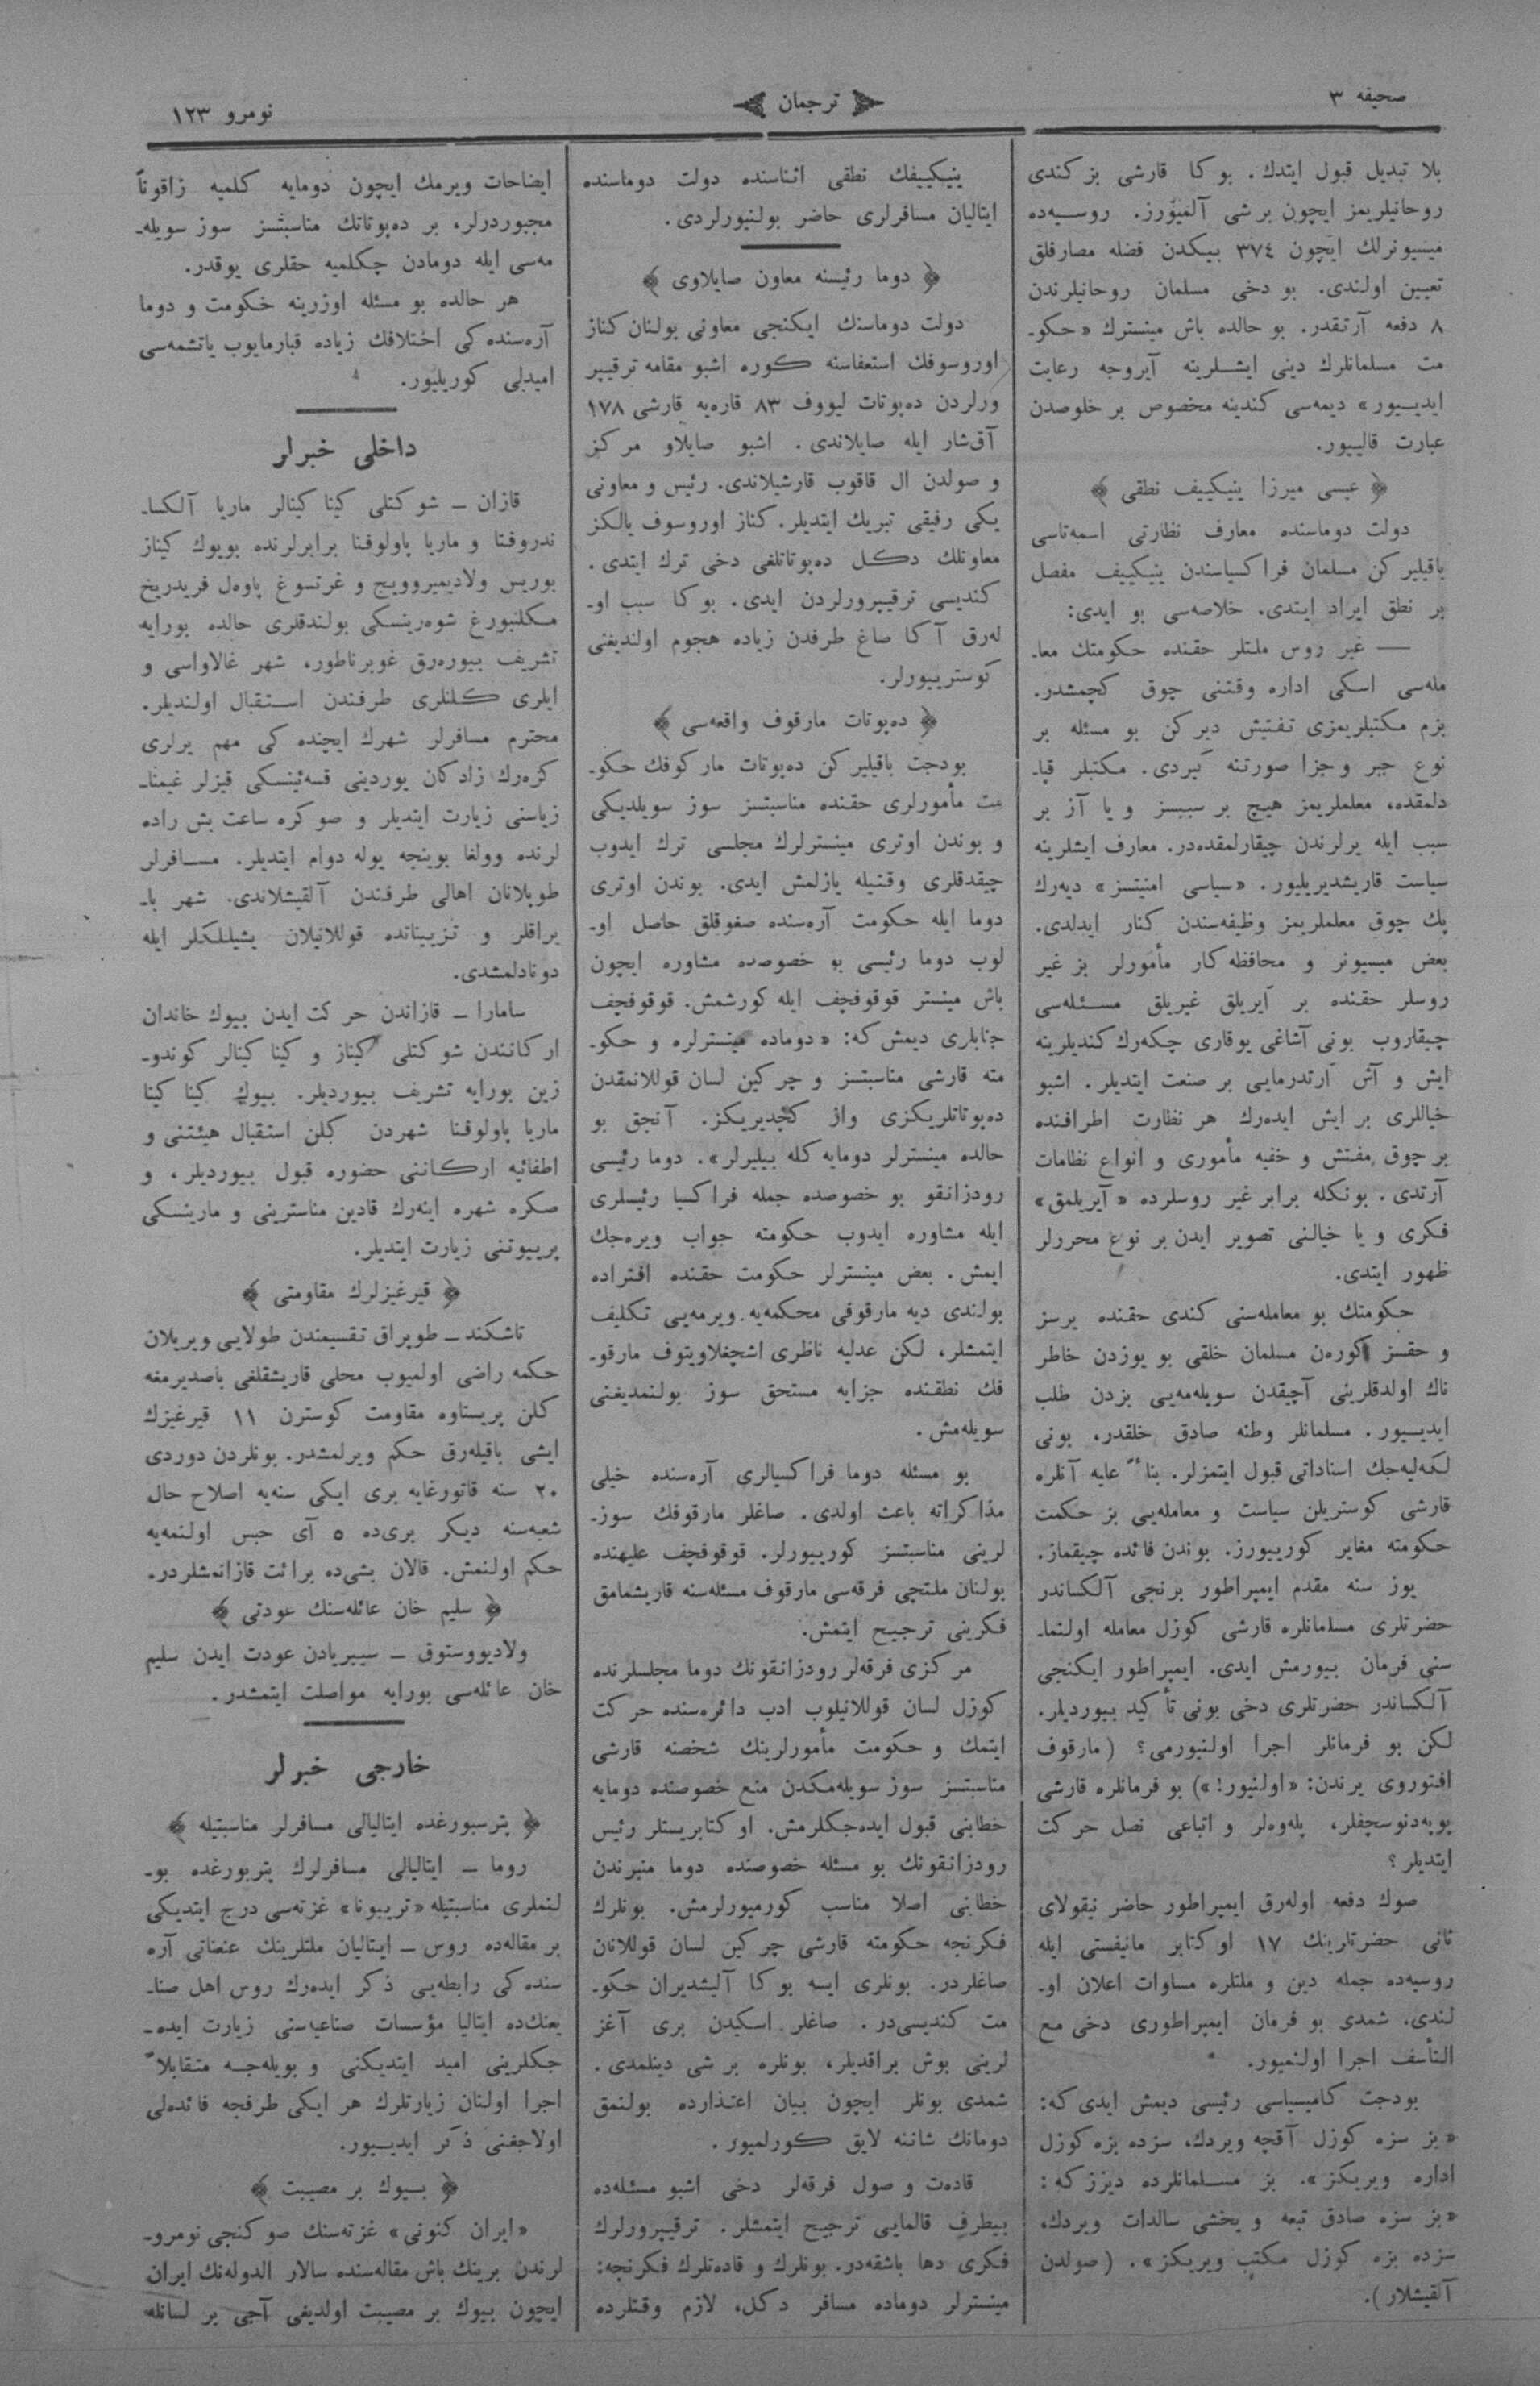 صحیفه ٣
ترجمان
نومرو ١٢٣
بلا تبدیل قبول ایتدك. بوكا قارشی بز كندی
روحانیلریمز ایچون بر شی آلمیورز. روسیه‌ده
میسیونرلك ایچون ٣٧٤ بیكدن فضله مصارفلق
تعیین اولندی. بو دخی مسلمان روحانیلرندن
٨ دفعه آرتقدر. بو حالده باش مینسترك «حكو-
مت مسلمانلرك دینی ایشلرینه آیروجه رعایت
ایدییور» دیمه‌سی كندینه مخصوص بر خلوصدن
عبارت قالییور.
﴿ عیسی میرزا ینیكییف نطقی ﴾
دولت دوماسنده معارف نظارتی اسمه‌تاسی
باقیلیركن مسلمان فراكسیاسندن ینیكییف مفصل
بر نطق ایراد ایتدی. خلاصه‌سی بو ایدی:
— غیر روس ملتلر حقنده حكومتك معا-
مله‌سی اسكی اداره وقتنی چوق كچمشدر.
بزم مكتبلریمزی تفتیش دیركن بو مسئله بر
نوع جبر و جزا صورتنه كیردی. مكتبلر قپا-
دلمقده، معلملریمز هیچ بر سببسز و یا آز بر
سبب ایله یرلرندن چیقارلمقده‌در. معارف ایشلرینه
سیاست قاریشدیریلیور. «سیاسی امنیتسز» دیه‌رك
پك چوق معلملریمز وظیفه‌سندن كنار ایدلدی.
بعض میسیونر و محافظه‌كار مأمورلر بز غیر
روسلر حقنده بر آیریلق غیریلق مسئله‌سی
چیقاروب بونی آشاغی یوقاری چكه‌رك كندیلرینه
ایش و آش آرتدرمایی بر صنعت ایتدیلر. اشبو
خیاللری بر ایش ایده‌رك هر نظارت اطرافنده
بر چوق مفتش و خفیه مأموری و انواع نظامات
آرتدی. بونكله برابر غیر روسلرده «آیریلمق»
فكری و یا خیالنی تصویر ایدن بر نوع محررلر
ظهور ایتدی.
حكومتك بو معامله‌سنی كندی حقنده یرسز
و حقسز كوره‌ن مسلمان خلقی بو یوزدن خاطر
ناك اولدقلرینی آچیقدن سویله‌مه‌یی بزدن طلب
ایدییور. مسلمانلر وطنه صادق خلقدر، بونی
لكه‌لیه‌جك اسناداتی قبول ایتمزلر. بناءً علیه آنلره
قارشی كوستریلن سیاست و معامله‌یی بز حكمت
حكومته مغایر كورییورز. بوندن فائده چیقماز.
یوز سنه مقدم ایمپراطور برنجی آلكساندر
حضرتلری مسلمانلره قارشی كوزل معامله اولنما-
سنی فرمان بیورمش ایدی. ایمپراطور ایكنجی
آلكساندر حضرتلری دخی بونی تأكید بیوردیلر.
لكن بو فرمانلر اجرا اولنیورمی؟ (مارقوف
افتوروی یرندن: «اولنیور!») بو فرمانلره قارشی
پوبه‌دنوسچفلر، پله‌وه‌لر و اتباعی نصل حركت
ایتدیلر؟
صوك دفعه اوله‌رق ایمپراطور حاضر نیقولای
ثانی حضرتلرینك ١٧ اوكتابر مانیفستی ایله
روسیه‌ده جمله دین و ملتلره مساوات اعلان او-
لندی. شمدی بو فرمان ایمپراطوری دخی مع
التأسف اجرا اولنمیور.
بودجت كامیسیاسی رئیسی دیمش ایدی كه:
«بز سزه كوزل آقچه ویردك، سزده بزه كوزل
اداره ویریكز». بز مسلمانلرده دیرزكه:
«بز سزه صادق تبعه و یخشی سالدات ویردك،
سزده بزه كوزل مكتب ویریكز». (صولدن
آلقیشلار).
ینیكییفك نطقی اثناسنده دولت دوماسنده
ایتالیان مسافرلری حاضر بولنیورلردی.
﴿ دوما رئیسنه معاون صایلاوی ﴾
دولت دوماسنك ایكنجی معاونی بولنان كناز
اوروسوفك استعفاسنه كوره اشبو مقامه ترقیپر
ورلردن ده‌پوتات لیووف ٨٣ قاره‌یه قارشی ١٧٨
آق‌شار ایله صایلاندی. اشبو صایلاو مركز
و صولدن ال قاقوب قارشیلاندی. رئیس و معاونی
یكی رفیقی تبریك ایتدیلر. كناز اوروسوف یالكز
معاونلك دكل ده‌پوتاتلغی دخی ترك ایتدی.
كندیسی ترقیپرورلردن ایدی. بوكا سبب او-
له‌رق آكا صاغ طرفدن زیاده هجوم اولندیغنی
كوسترییورلر.
﴿ ده‌پوتات مارقوف واقعه‌سی ﴾
بودجت باقیلیركن ده‌پوتات ماركوفك حكو-
مت مأمورلری حقنده مناسبتسز سوز سویلدیكی
و بوندن اوتری مینسترلرك مجلسی ترك ایدوب
چیقدقلری وقتیله یازلمش ایدی. بوندن اوتری
دوما ایله حكومت آره‌سنده صغوقلق حاصل او-
لوب دوما رئیسی بو خصوصده مشاوره ایچون
باش مینستر قوقوفچف ایله كورشمش. قوقوفچف
جنابلری دیمش كه: «دوماده مینسترلره و حكو-
مته قارشی مناسبتسز و چركین لسان قوللانمقدن
ده‌پوتاتلریكزی واز كچدیریكز. آنجق بو
حالده مینسترلر دومایه كله بیلیرلر». دوما رئیسی
رودزانقو بو خصوصده جمله فراكسیا رئیسلری
ایله مشاوره ایدوب حكومته جواب ویره‌جك
ایمش. بعض مینسترلر حكومت حقنده افتراده
بولندی دیه مارقوفی محكمه‌یه ویرمه‌یی تكلیف
ایتمشلر، لكن عدلیه ناظری اشچغلاویتوف مارقو-
فك نطقنده جزایه مستحق سوز بولنمدیغنی
سویله‌مش.
بو مسئله دوما فراكسیالری آره‌سنده خیلی
مذاكراته باعث اولدی. صاغلر مارقوفك سوز-
لرینی مناسبتسز كورییورلر. قوقوفچف علیهنده
بولنان ملتچی فرقه‌سی مارقوف مسئله‌سنه قاریشمامق
فكرینی ترجیح ایتمش.
مركزی فرقه‌لر رودزانقونك دوما مجلسلرنده
كوزل لسان قوللانیلوب ادب دائره‌سنده حركت
ایتمك و حكومت مأمورلرینك شخصنه قارشی
مناسبتسز سوز سویله‌مكدن منع خصوصنده دومایه
خطابنی قبول ایده‌جكلرمش. اوكتابریستلر رئیس
رودزانقونك بو مسئله خصوصنده دوما منبرندن
خطابی اصلا مناسب كورمیورلرمش. بونلرك
فكرنجه حكومته قارشی چركین لسان قوللانان
صاغلردر. بونلری ایسه بوكا آلیشدیران حكو-
مت كندیسی‌در. صاغلر اسكیدن بری آغز
لرینی بوش براقدیلر، بونلره بر شی دینلمدی.
شمدی بونلر ایچون بیان اعتذارده بولنمق
دومانك شاننه لایق كورلمیور.
قاده‌ت و صول فرقه‌لر دخی اشبو مسئله‌ده
بیطرف قالمایی ترجیح ایتمشلر. ترقیپرورلرك
فكری دها باشقه‌در. بونلرك و قاده‌تلرك فكرنجه:
مینسترلر دوماده مسافر دكل، لازم وقتلرده
ایضاحات ویرمك ایچون دومایه كلمیه زاقوناً
مجبوردرلر، بر ده‌پوتاتك مناسبتسز سوز سویله-
مه‌سی ایله دومادن چكلمیه حقلری یوقدر.
هر حالده بو مسئله اوزرینه حكومت و دوما
آره‌سنده‌كی اختلافك زیاده قبارمایوب یاتشمه‌سی
امیدلی كوریلیور.
داخلی خبرلر
قازان — شوكتلی كیناكینالر ماریا آلكسا-
ندروفنا و ماریا پاولوفنا برابرلرنده بویوك كیناز
بوریس ولادیمیروویچ و غرتسوغ پاوه‌ل فریدریخ
مكلنبورغ شوه‌رینسكی بولندقلری حالده بورایه
تشریف بیوره‌رق غوبرناطور، شهر غالاواسی و
ایلری كلنلری طرفندن استقبال اولندیلر.
محترم مسافرلر شهرك ایچنده‌كی مهم یرلری
كزه‌رك زادكان یوردینی قسه‌ئینسكی قیزلر غیمنا-
زیاسنی زیارت ایتدیلر و صوكره ساعت بش راده
لرنده وولغا بوینجه یوله دوام ایتدیلر. مسافرلر
طوپلانان اهالی طرفندن آلقیشلاندی. شهر با-
یراقلر و تزییناتده قوللانیلان یشیللكلر ایله
دونادلمشدی.
سامارا — قازاندن حركت ایدن بیوك خاندان
اركانندن شوكتلی كیناز و كیناكینالر كوندو-
زین بورایه تشریف بیوردیلر. بیوك كیناكینا
ماریا پاولوفنا شهردن كلن استقبال هیئتنی و
اطفائیه اركاننی حضوره قبول بیوردیلر، و
صكره شهره اینه‌رك قادین مناسترینی و مارینسكی
پرییوتنی زیارت ایتدیلر.
﴿ قیرغیزلرك مقاومتی ﴾
تاشكند — طوپراق تقسیمندن طولایی ویریلان
حكمه راضی اولمیوب محلی قاریشقلغی باصدیرمغه
كلن پریستاوه مقاومت كوسترن ١١ قیرغیزك
ایشی باقیله‌رق حكم ویرلمشدر. بونلردن دوردی
٢٠ سنه قاتورغایه بری ایكی سنه‌یه اصلاح حال
شعبه‌سنه دیكر بری‌ده ٥ آی حبس اولنمه‌یه
حكم اولنمش. قالان بشی‌ده برائت قازانمشلردر.
﴿ سلیم خان عائله‌سنك عودتی ﴾
ولادیووستوق — سیبریادن عودت ایدن سلیم
خان عائله‌سی بورایه مواصلت ایتمشدر.
خارجی خبرلر
﴿ پترسبورغده ایتالیالی مسافرلر مناسبتیله ﴾
روما — ایتالیالی مسافرلرك پتربورغده بو-
لنملری مناسبتیله «تریبونا» غزته‌سی درج ایتدیكی
بر مقاله‌ده روس — ایتالیان ملتلرینك عنعناتی آره
سنده‌كی رابطه‌یی ذكر ایده‌رك روس اهل صنا-
یعنك‌ده ایتالیا مؤسسات صناعیه‌سنی زیارت ایده-
جكلرینی امید ایتدیكنی و بویله‌جه متقابلاً
اجرا اولنان زیارتلرك هر ایكی طرفجه فائده‌لی
اولاجغنی ذكر ایدییور.
﴿ بیوك بر مصیبت ﴾
«ایران كنونی» غزته‌سنك صوكنجی نومرو-
لرندن برینك باش مقاله‌سنده سالار الدوله‌نك ایران
ایچون بیوك بر مصیبت اولدیغی آجی بر لسانله